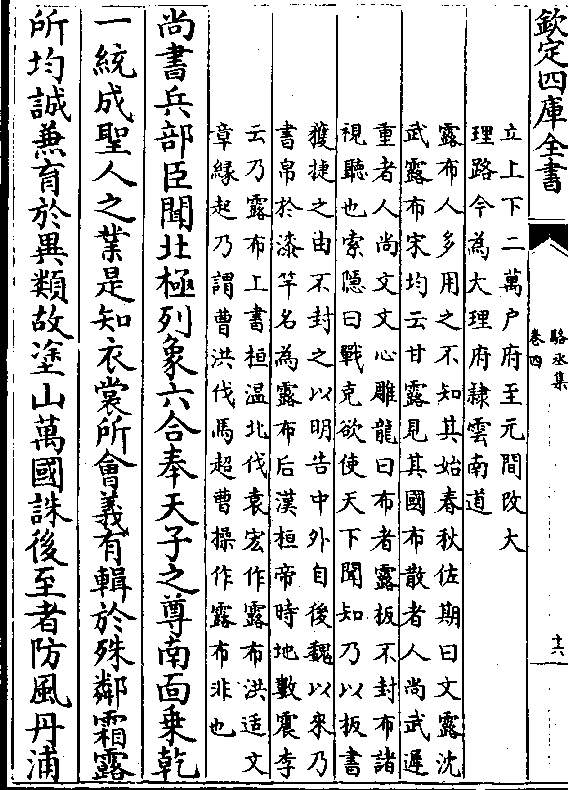 欽定四庫全書
駱丞集
卷四
十六
立上下二萬户府至元間改大
理路今為大理府隸雲南道
露布人多用之不知其始春秋佐期曰文露沈
武露布宋均云甘露見其國布散者人尚武遲
重者人尚文文心雕龍曰布者露板不封布諸
視聽也索隱曰戰克欲使天下聞知乃以板書
獲捷之由不封之以明告中外自後魏以來乃
書帛於漆竿名為露布后漢桓帝時地數震李
云乃露布上書桓温北伐袁宏作露布洪适文
章縁起乃謂曹洪伐馬超曹操作露布非也
尚書兵部臣聞北極列象六合奉天子之尊南面乗乾
一統成聖人之業是知衣裳所會義有輯於殊鄰霜露
所均誠兼育於異類故塗山萬國誅後至者防風丹浦